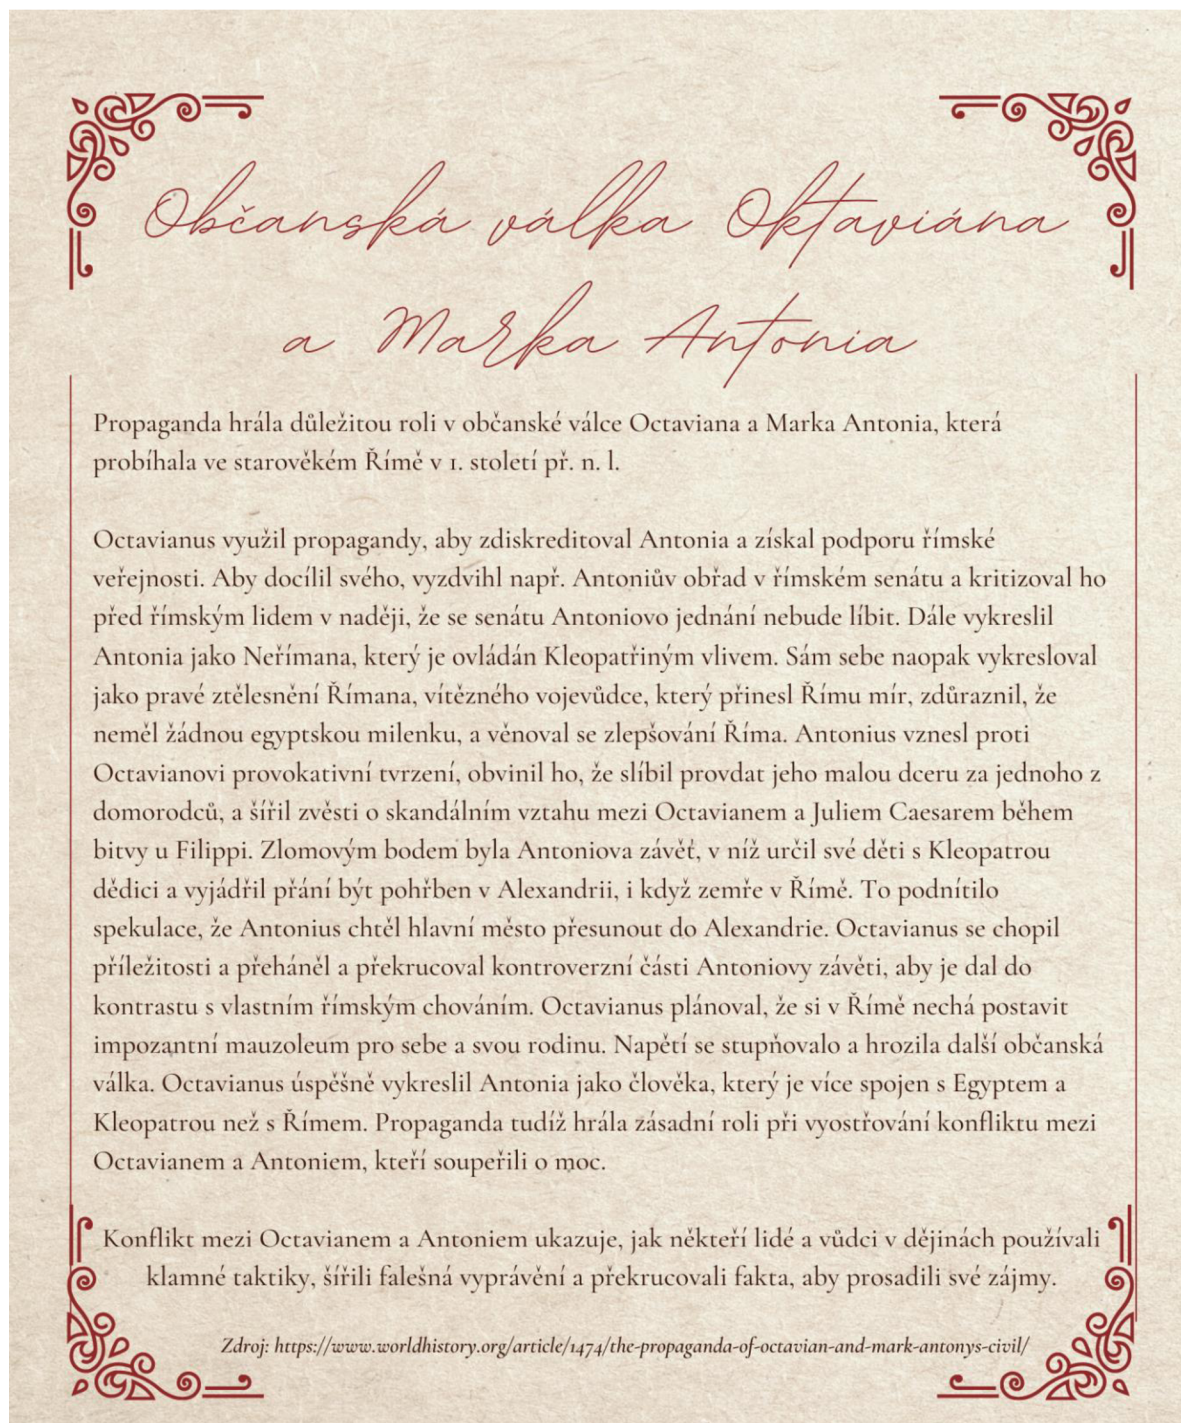 Občanská válka Oktaviána
a Marka Antonia
Propaganda hrála důležitou roli v občanské válce Octaviana a Marka Antonia, která
probíhala ve starověkém Římě v 1. století př. n. l.
Octavianus využil propagandy, aby zdiskreditoval Antonia a získal podporu římské
veřejnosti. Aby docílil svého, vyzdvihl např. Antoniův obřad v římském senátu a kritizoval ho
před římským lidem v naději, že se senátu Antoniovo jednání nebude líbit. Dále vykreslil
Antonia jako Neřímana, který je ovládán Kleopatřiným vlivem. Sám sebe naopak vykresloval
jako pravé ztělesnění Římana, vítězného vojevůdce, který přinesl Římu mír, zdůraznil, že
neměl žádnou egyptskou milenku, a věnoval se zlepšování Říma. Antonius vznesl proti
Octavianovi provokativní tvrzení, obvinil ho, že slíbil provdat jeho malou dceru za jednoho z
domorodců, a šířil zvěsti o skandálním vztahu mezi Octavianem a Juliem Caesarem během
bitvy u Filippi. Zlomovým bodem byla Antoniova závěť, v níž určil své děti s Kleopatrou
dědici a vyjádřil přání být pohřben v Alexandrii, i když zemře v Římě. To podnítilo
spekulace, že Antonius chtěl hlavní město přesunout do Alexandrie. Octavianus se chopil
příležitosti a přeháněl a překrucoval kontroverzní části Antoniovy závěti, aby je dal do
kontrastu s vlastním římským chováním. Octavianus plánoval, že si v Římě nechá postavit
impozantní mauzoleum pro sebe a svou rodinu. Napětí se stupňovalo a hrozila další občanská
válka. Octavianus úspěšně vykreslil Antonia jako člověka, který je více spojen s Egyptem a
Kleopatrou než s Římem. Propaganda tudíž hrála zásadní roli při vyostřování konfliktu mezi
Octavianem a Antoniem, kteří soupeřili o moc.
Konflikt mezi Octavianem a Antoniem ukazuje, jak někteří lidé a vůdci v dějinách používali
klamné taktiky, šířili falešná vyprávění a překrucovali fakta, aby prosadili své zájmy.
Zdroj: https://www.worldhistory.org/article/1474/the-propaganda-of-octavian-and-mark-antonys-civil/